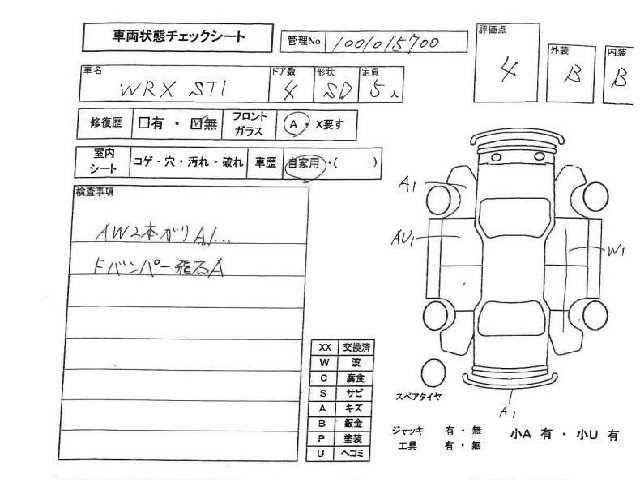 車両状態チェックシート 管理No 1001015700 評価点 4 外装 B 内装 B
車名 WRX STI ドア数 4 形状 SD 定員 5人
修復歴 □有・☑無 フロントガラス A・X要す
室内シート コゲ・穴・汚れ・破れ 車歴 自家用・( )
検査事項
AW2本ガリA1...
Fバンパー飛石A
A1
AU1
W1
A1
XX 交換済
W 波
C 腐食
S サビ
A キズ
B 鈑金
P 塗装
U ヘコミ
スペアタイヤ
ジャッキ 有・無
工具 有・無
小A 有・小U 有